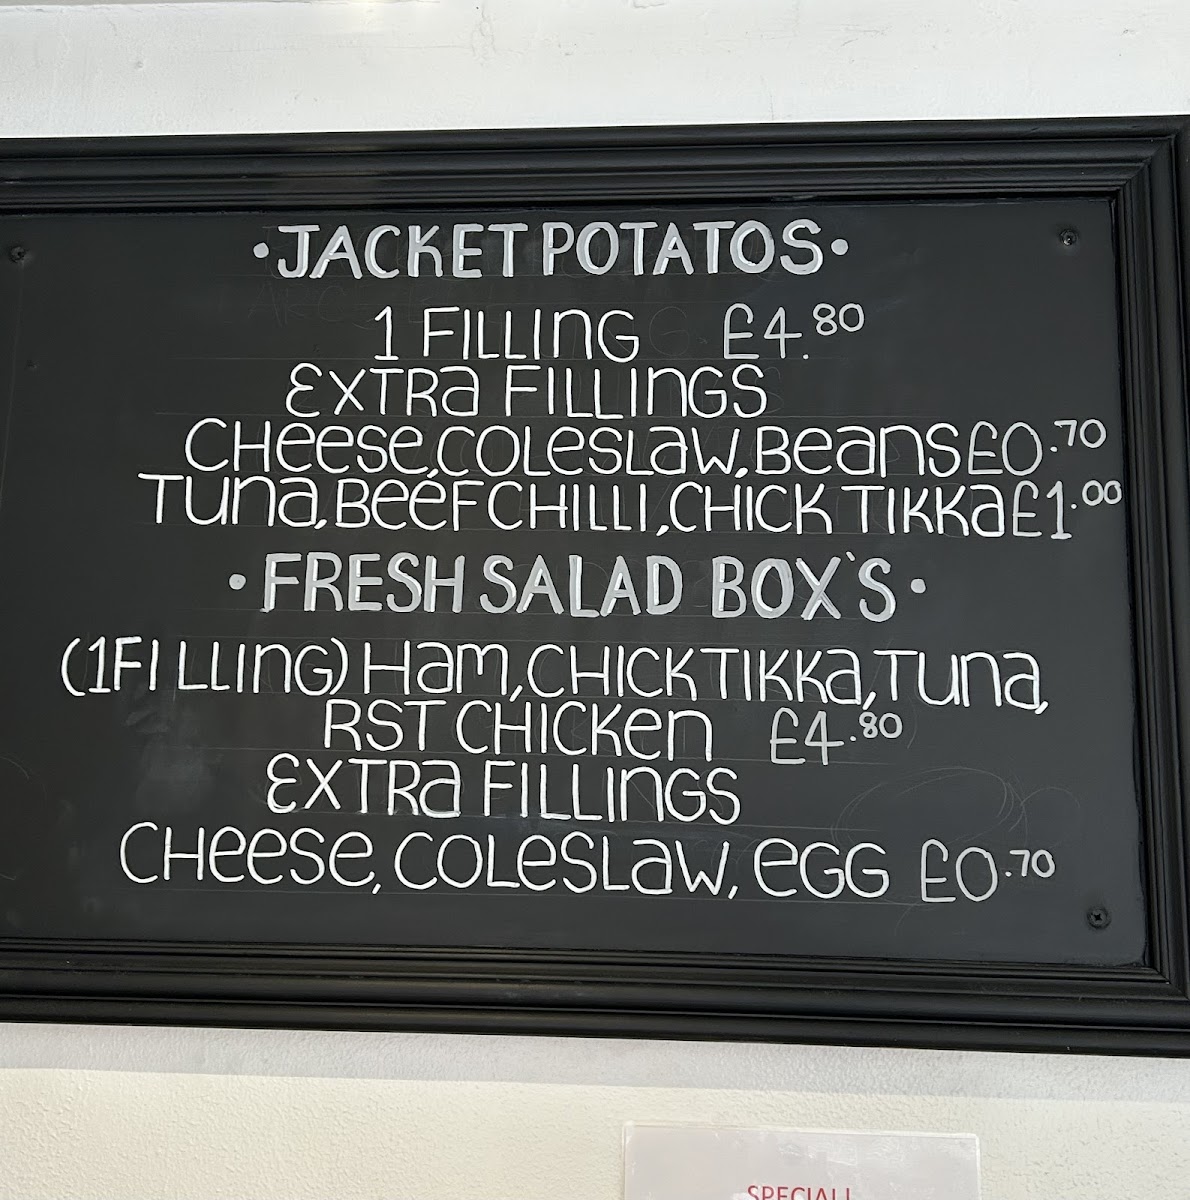 •JACKET POTATOS•
1 FILLING £4.80
EXTRA FILLINGS
CHEESE,COLESLAW,BEANS £0.70
TUNA,BEEF CHILLI,CHICK TIKKA £1.00
•FRESH SALAD BOX'S•
(1FILLING) HAM,CHICK TIKKA,TUNA,
RST CHICKEN £4.80
EXTRA FILLINGS
CHEESE,COLESLAW,EGG £0.70